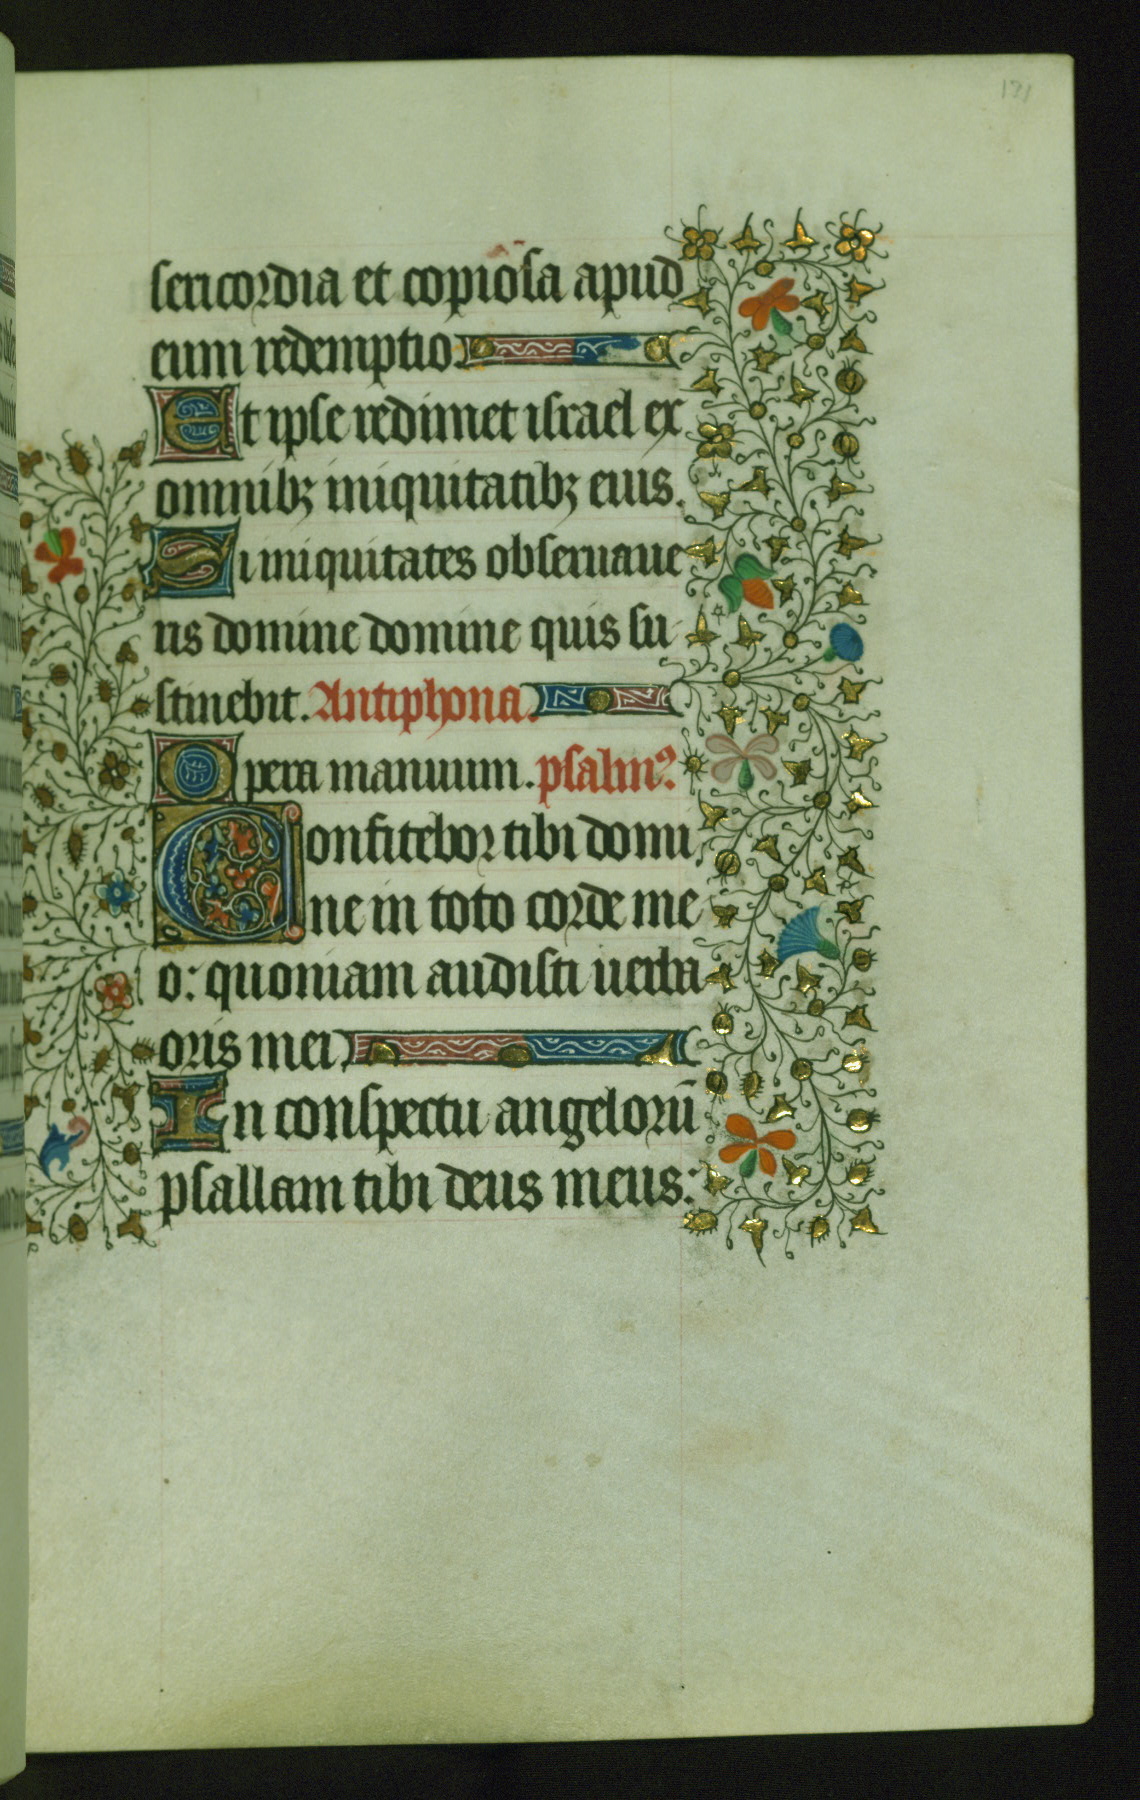 131
sericordia et copiosa apud
eum redemptio.
Et ipse redimet israel ex
omnibꝫ iniquitatibꝫ eius.
Si iniquitates obseruaue
ris domine domine quis su
stinebit. Antiphona.
Opera manuum. psalmꝰ
Confitebor tibi domi
ne in toto corde me
o: quoniam audisti uerba
oris mei
In conspectu angelorū
psallam tibi deus meus: